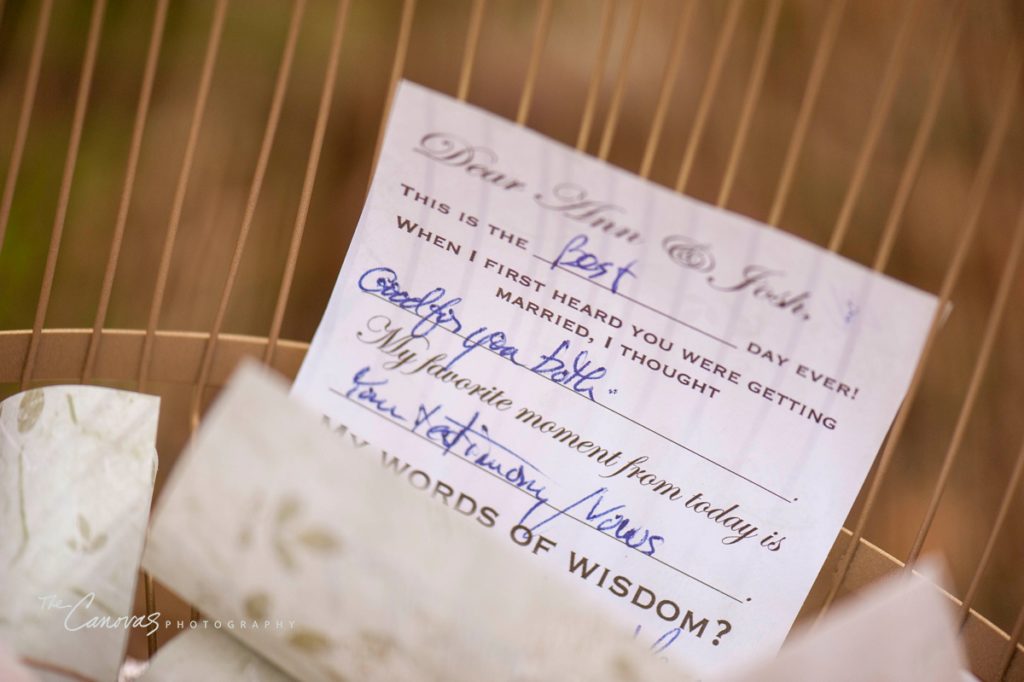 Dear Ann & Josh,
THIS IS THE Best DAY EVER!
WHEN I FIRST HEARD YOU WERE GETTING
MARRIED, I THOUGHT
Good for you both.
My favorite moment from today is
Your testimony/Vows.
MY WORDS OF WISDOM?
The Canovas PHOTOGRAPHY